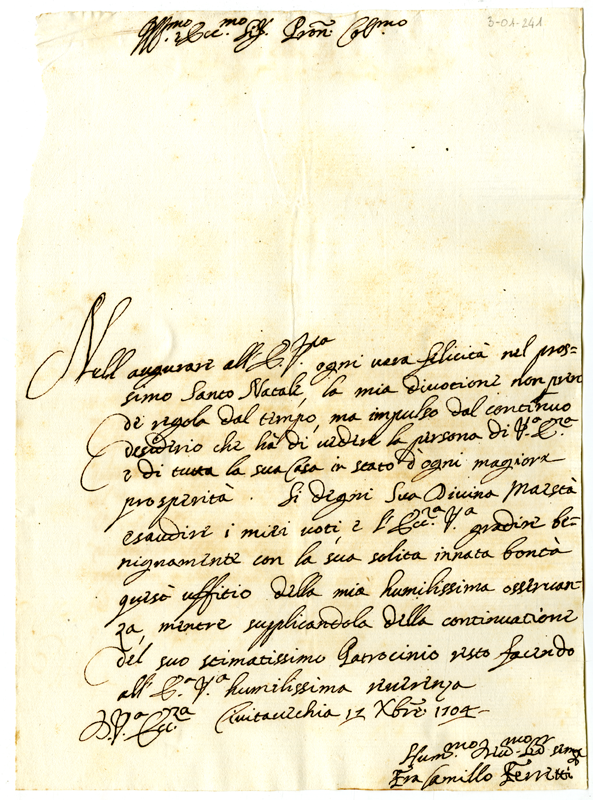 3-01-241
Ill.mo et Ecc.mo Sig. Pron Col.mo
Nell augurare all' E. V.ra ogni vera felicità nel pros=
simo Santo Natale, la mia divotione non pren
de regola dal tempo, ma impulso dal continuo
desiderio che hà di vedere la persona di V.a Ecc.a
e di tutta la sua Casa in stato d'ogni magiore
prosperità. Si degni Sua Divina Maestà
esaudire i miei voti, e l' Ecc.za V.a gradire be=
nignamente con la sua solita innata bontà
questo uffitio della mia humilissima osservan=
za, mentre supplicandola della continuatione
del suo stimatissimo Patrocinio resto facendo
all' E.a V.a humilissima riverenza
D. V.a Ecc.za Civitavechia 17 Xbre 1704
Hum.mo
Fra Camillo Ferretti